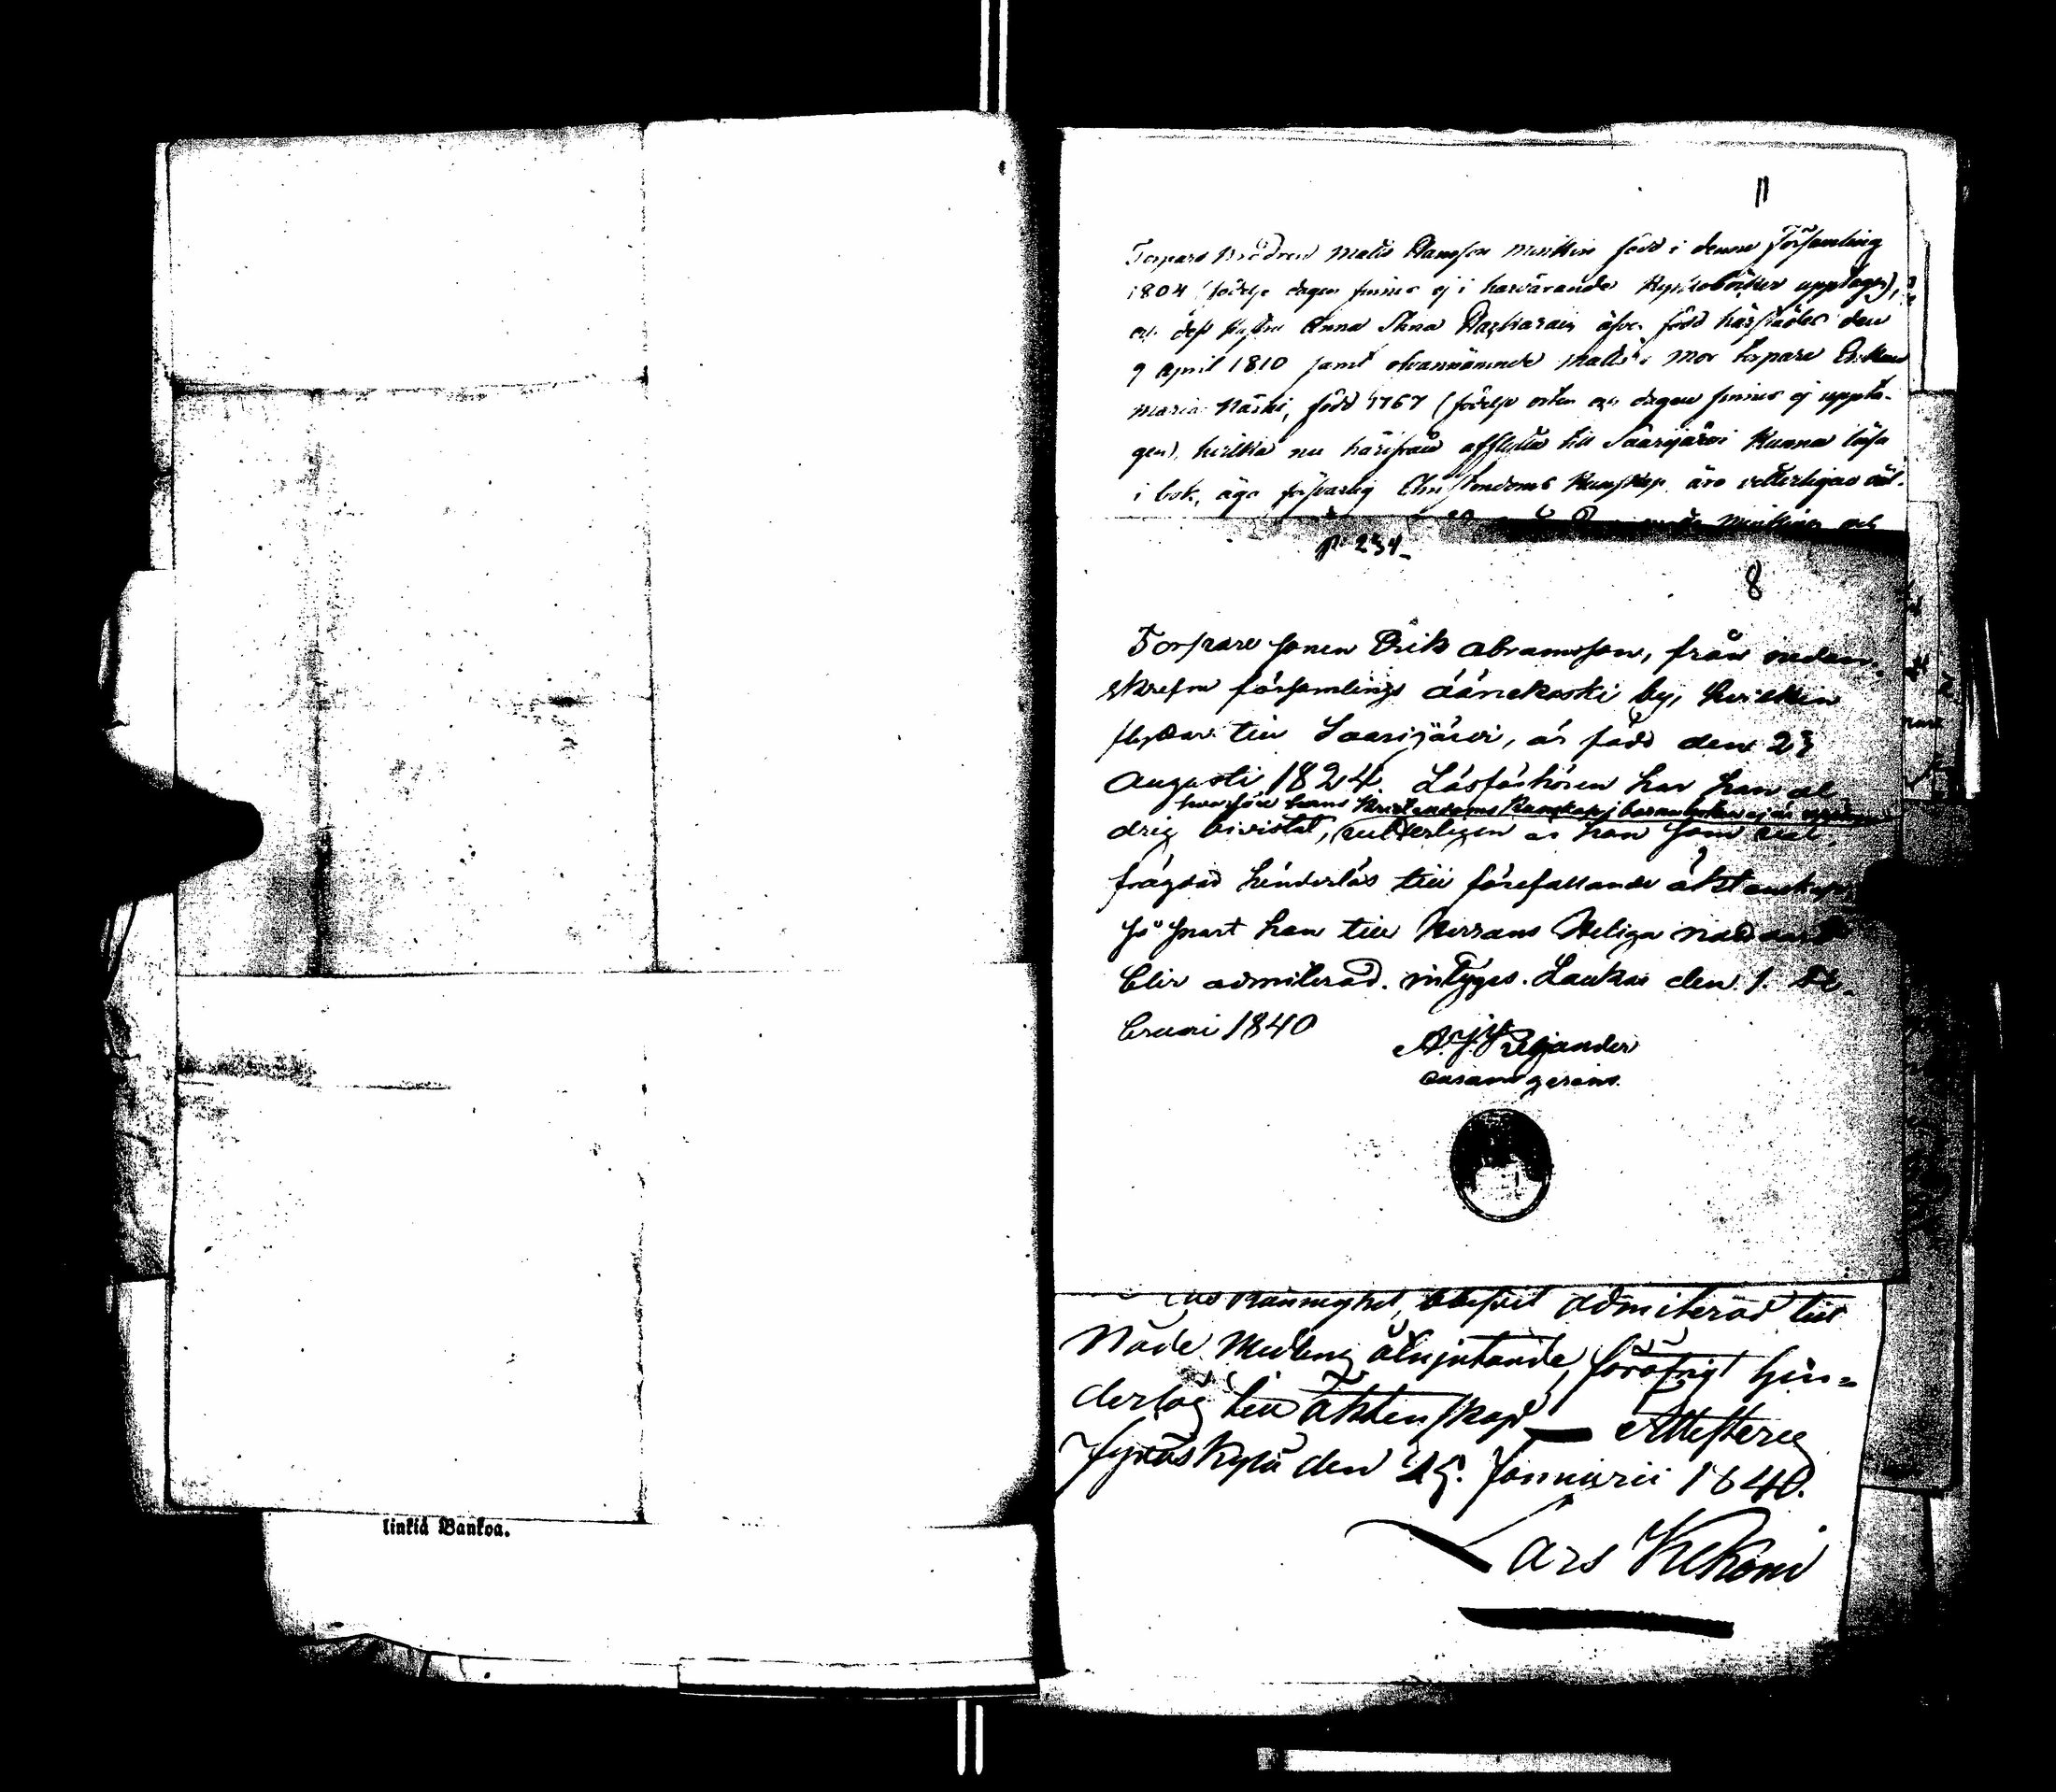 linkiä Bankoa.
11
Torpare Brodren Matts Hansson Minkkin född i denna Församling
1804 (födelse dagen finnes ej i härvarande Kyrkoböcker upptagen),
och dess Hustru Anna Stina Zachariasd. äfven född härstädes den
9 April 1810 samt ofvannämnde Matts's Mor torpare Enkan
Maria Näski, född 1767 (födelse orten och dagen finnes ej uppta-
gen), hvilka nu härifrån afflytta till Saarijärvi Kunna läsa
i bok, äga försvarlig Christendoms Kunskap, äro vetterligen väl-
Minkkinen och
p. 234
8
Torpare sonen Erik Abramsson, från nedan-
skrefne församlings Äänekoski by, hvilken
flyttar till Saarijärvi, är född den 23
Augusti 1824. Läsförhören har han al-
hvarföre hans Kristendoms Kunskap j barnaboken ej är
drig bivistat, vetterligen är han som väl-
frägdad hinderlös till förefallande äktenskap
så snart han till Herrans Heliga nattvard
blir admitterad. intygas. Laukas den 1. Fe-
bruari 1840
A. J. Helander
curam gerens.
admitterad till
Nåde Medlens åtnjutande, föröfrigt hin=
derlös till äktenskap — Attesterer
Jyväskylä den 25. Januarii 1840.
Lars Kekoni